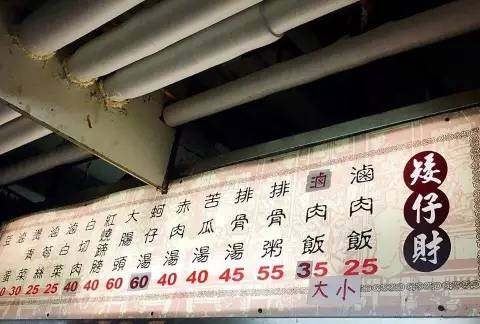 矮仔財
滷肉飯 25 小
滷肉飯 35 大
排骨粥 55
排骨湯 45
苦瓜湯 40
赤肉湯 40
蚵仔湯 60
大腸頭 60
紅燒蹄 40
白切肉 40
滷菜 25
絲 25
菜 30